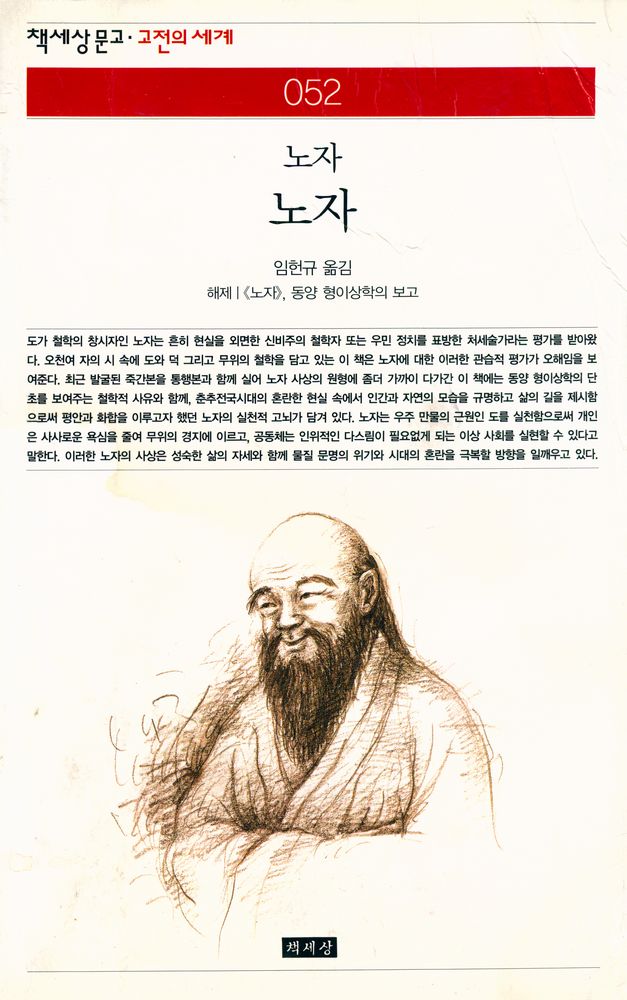 책세상 문고 · 고전의 세계
052
노자
노자
임헌규 옮김
해제 | 《노자》, 동양 형이상학의 보고
도가 철학의 창시자인 노자는 흔히 현실을 외면한 신비주의 철학자 또는 우민 정치를 표방한 처세술가라는 평가를 받아왔
다. 오천여 자의 시 속에 도와 덕 그리고 무위의 철학을 담고 있는 이 책은 노자에 대한 이러한 관습적 평가가 오해임을 보
여준다. 최근 발굴된 죽간본을 통행본과 함께 실어 노자 사상의 원형에 좀더 가까이 다가간 이 책에는 동양 형이상학의 단
초를 보여주는 철학적 사유와 함께, 춘추전국시대의 혼란한 현실 속에서 인간과 자연의 모습을 규명하고 삶의 길을 제시함
으로써 평안과 화합을 이루고자 했던 노자의 실천적 고뇌가 담겨 있다. 노자는 우주 만물의 근원인 도를 실천함으로써 개인
은 사사로운 욕심을 줄여 무위의 경지에 이르고, 공동체는 인위적인 다스림이 필요없게 되는 이상 사회를 실현할 수 있다고
말한다. 이러한 노자의 사상은 성숙한 삶의 자세와 함께 물질 문명의 위기와 시대의 혼란을 극복할 방향을 일깨우고 있다.
책세상